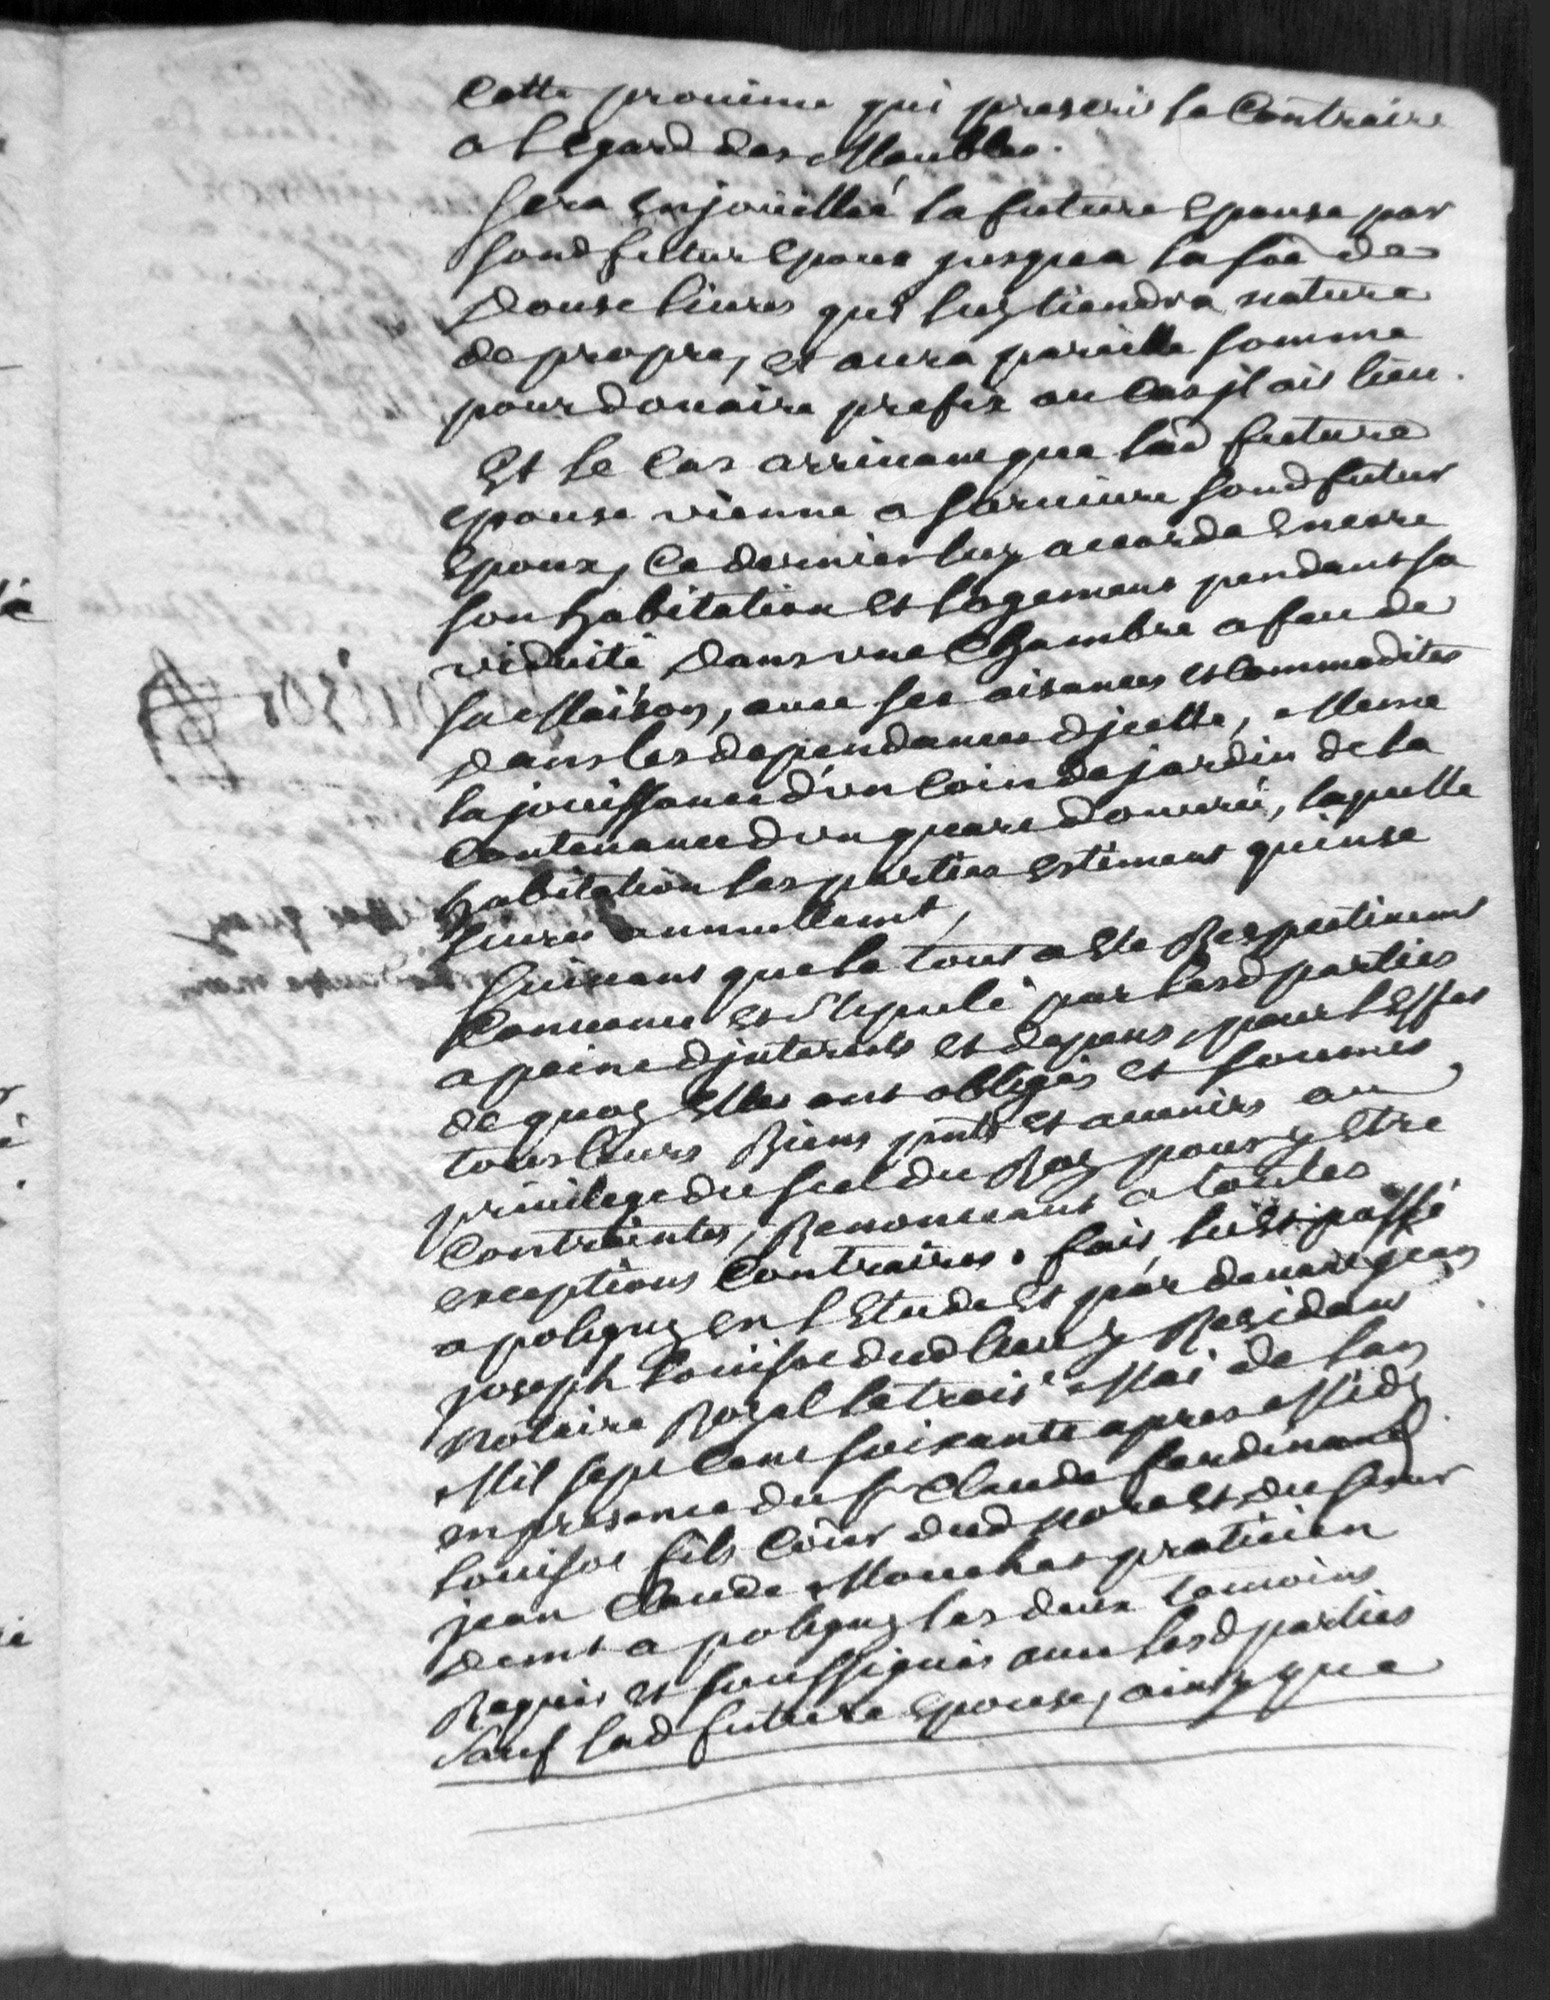 Cette prouince qui prescrit le Contraire
a l'egard des Meubles.
Sera enjoüellée la future epouse par
sond futur epoux jusqua la soē de
Douse liures qui luy tiendra nature
de propre, et aura pareille somme
pour doüaire prefix au cas jl ait lieu.
Et le Cas arriuant que lad future
epouse vienne a suruiure sond futur
epoux, Ce dernier luy accorde encore
son habitation et logement pendant sa
viduité, Dans vne Chambre a feu de
sa Maison, auec ses aisances et Commodites
Dans les dependances djcelle, Meme
la jouissance d'vn Coin de jardin de la
Contenance d'vn quart d'ouurée, laquelle
habitation les parties estiment quinse
liures annuellement,
Suiuant que le tout a ete Respectiuemt
Conuenu et stipulé par lesd parties
a peine djnterests et depens, pour l'effet
de quoy elles ont obligés et soumis
tous leurs Biens pnts et auenirs au
priuilege du scel du Roy pour y etre
Contraintes, Renonceant a toutes
exceptions Contraires. fait lu et passé
a poligny en l'Etude et par deuant jean
joseph Louisot dud lieu y Residant
Notaire Royal le trois Mai de l'an
Mil sept Cent soixante apres Midy
en presence du sr Claude ferdinand
Louisot fils dud et du sieur
jean Claude Mouchet praticien
demt a poligny les deux temoins
Requis et soussignés auec lesd parties
Sauf lad future epouse, ainsy que